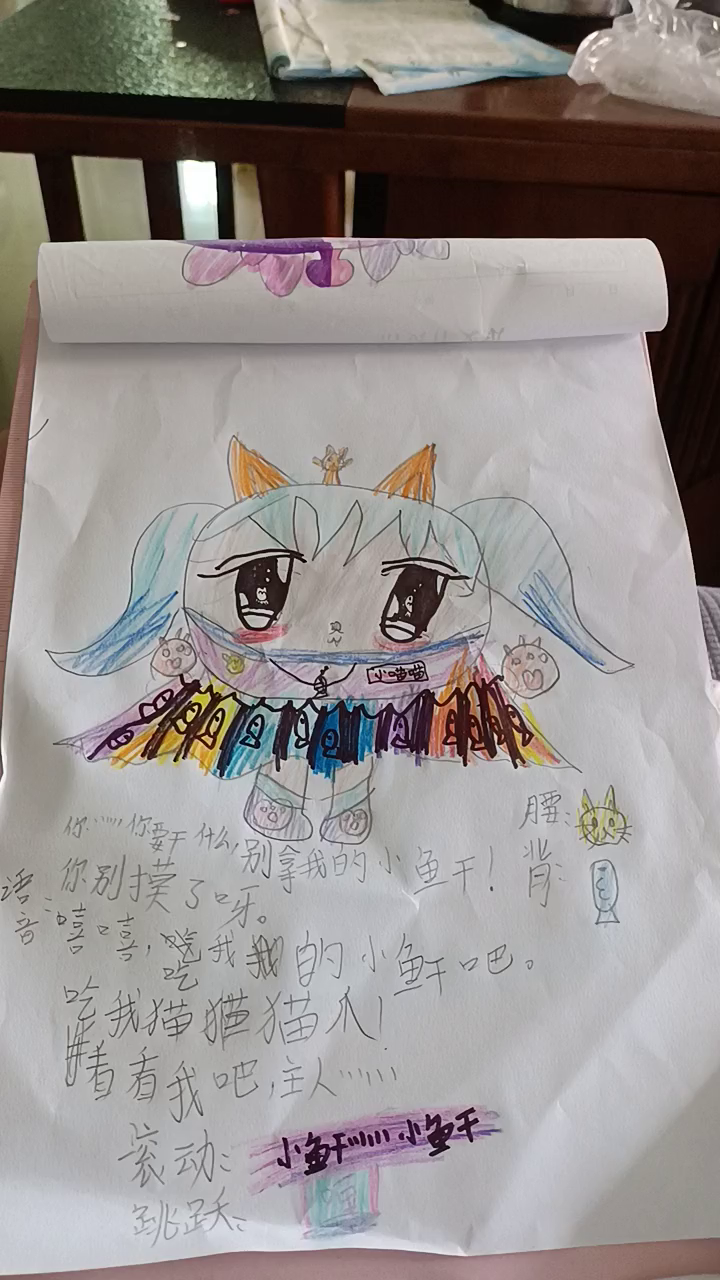 小喵喵
你……你要干什么,别拿我的小鱼干!
腰:
背:
语音:
你别摸了呀。
嘻嘻,吃我的小鱼干吧。
吃我猫猫猫爪!
看看我吧,主人……
滚动:小鱼干……小鱼干
跳跃: